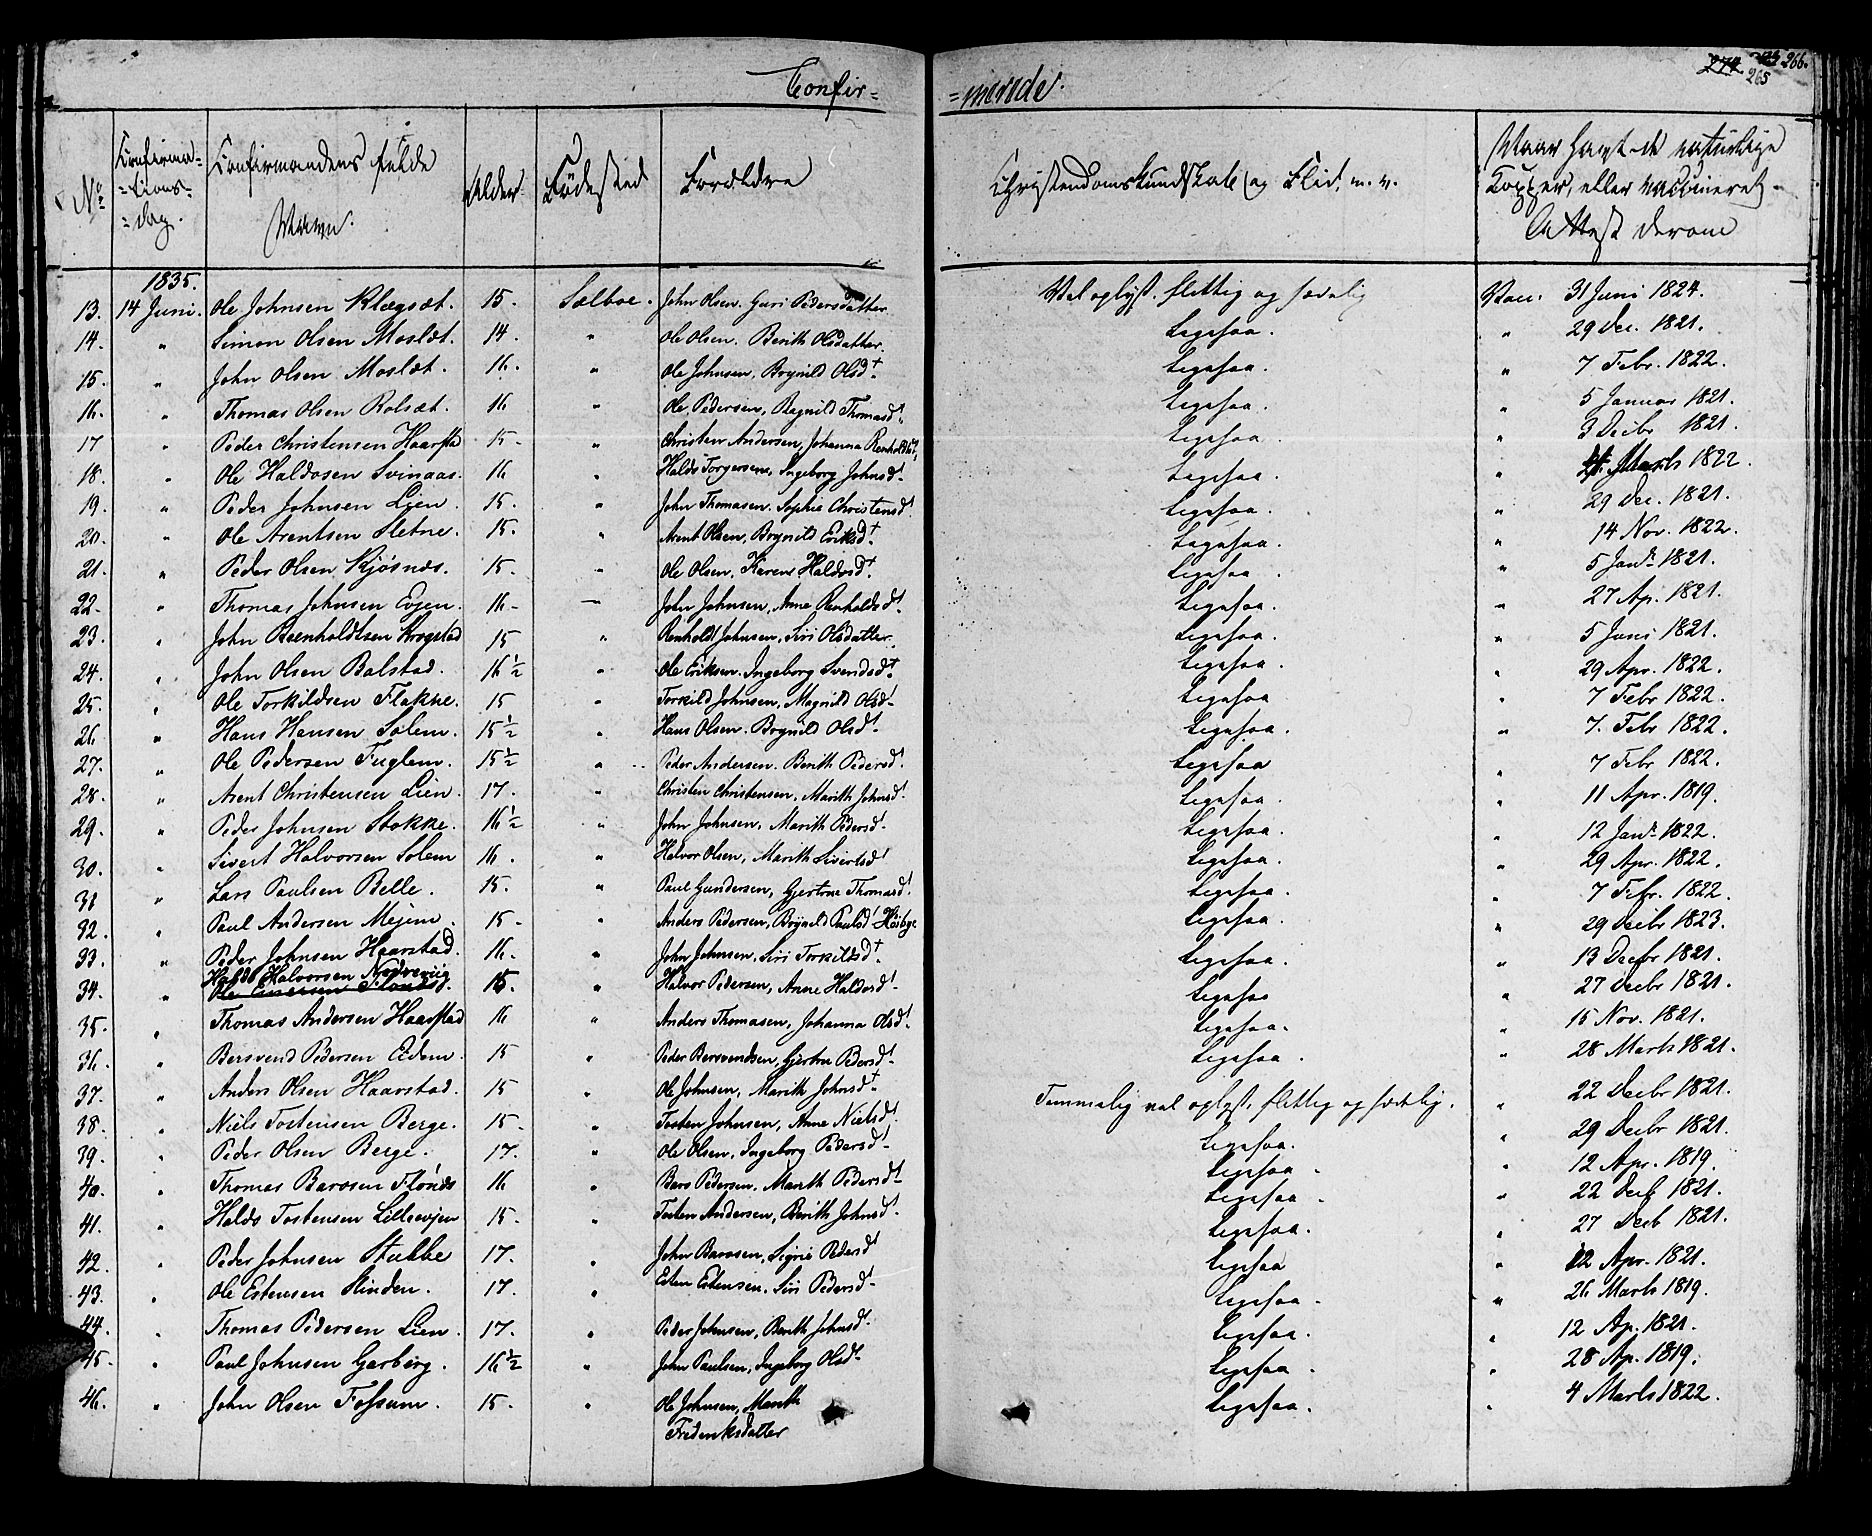 Confir= =merede. 274. 265 266.
No Confirma=tions=dag. Confirmandens fulde Navn. Alder. Fødested Forældre Christendomskundskab og Flid, m. v. Naar havt de naturlige Kopper, eller vaccineret. Attest derom
1835.
13. 14 Juni. Ole Johnsen Klegsæt. 15. Sælboe. John Olsen. Guri Pedersdatter Vel oplyst, flittig og sædelig Vacc. 31 Juni 1824.
14. " Simon Olsen Moslæt. 14. " Ole Olsen. Berith Olsdatter. Ligesaa. " 29 Dec. 1821.
15. " John Olsen Moslæt. 16. " Ole Johnsen, Brynild Olsdt. Ligesaa. " 7 Febr. 1822.
16. " Thomas Olsen Rolsæt. 16 " Ole Pedersen, Ragnild Thomasdt. Ligesaa. " 5 Januar 1821.
17 " Peder Christensen Haarstad 15. " Christen Andersen, Johanna Renholdsdt. Ligesaa. " 3 Decbr 1821.
18. " Ole Haldosen Svinaas. 16 " Haldo Torgersen, Ingeborg Johnsdt. Ligesaa. " 4 Marts 1822.
19. " Peder Johnsen Lien. 15. " John Thomasen. Sophie Christensdt. Ligesaa. " 29 Dec. 1821.
20. " Ole Arentsen Sletne. 15. " Arent Olsen, Brynild Eriksdt. Ligesaa. " 14 Nov. 1822.
21. " Peder Olsen Kjøsnæs. 15. " Ole Olsen, Karen Haldosdt. Ligesaa. " 5 Janr. 1821.
22. " Thomas Johnsen Evjen. 16. — John Johnsen, Anne Renholdsdt. Ligesaa. " 27 Ap. 1821.
23. " John Reenholdtsen Krogstad 15 " Renholdt Johnsen, Siri Olsdatter. Ligesaa. " 5 Juni 1821.
24. " John Olsen Balstad. 16 1/2 " Ole Eriksen. Ingeborg Svendsdt. Ligesaa. " 29 Apr. 1822.
25. " Ole Torkildsen Flakne. 15 " Torkild Johnsen, Magnild Olsdt. Ligesaa " 7 Febr 1822.
26 " Hans Hansen Solem. 15 1/2 " Hans Olsen. Brynild Olsdt. Ligesaa. " 7. Febr 1822.
27. " Ole Pedersen Fuglem. 15 1/2 " Peder Andersen. Berith Pedersdt. Ligesaa " 7 Febr 1822.
28. " Arent Christensen Lien. 17. " Christen Christensen. Marith Johnsdt. Ligesaa. " 11 Apr. 1819.
29. " Peder Johnsen Stokke. 16 1/2 " John Johnsen, Marith Pedersdt. Ligesaa. " 12 Janr. 1822.
30. " Sivert Halvorsen Solem 16. " Halvor Olsen, Marith Sivertsdt Ligesaa. " 29 Apr. 1822.
31 " Lars Paulsen Belle. 15. " Paul Gundersen, Gjertrue Thomasdt. Ligesaa. " 7 Febr. 1822.
32. " Paul Andersen Mejem. 15. " Anders Pedersen, Brynild Paulsdt Høibye Ligesaa. " 29 Decbr 1823.
33. " Peder Johnsen Haarstad. 16. " John Johnsen. Siri Torkildsdt. Ligesaa. " 13 Decbr 1821.
34. " Haldo Halvorsen Nordviig 15. " Halvor Pedersen, Anne Haldosdt. Ligesaa " 27 Decbr 1821.
35. " Thomas Andersen Haarstad 16 " Anders Thomasen, Johanna Olsdt. Ligesaa. " 15 Nov. 1821.
36. " Bersvend Pedersen Eidem. 15 " Peder Bersvendsen, Gjertru Persdt. Ligesaa. " 28 Marts 1821.
37. " Anders Olsen Haarstad. 15 " Ole Johnsen, Marith Johnsdt. Temmelig vel oplyst, flittig og sædelig. " 22 Decbr 1821.
38. " Niels Tostensen Berge. 15. " Tosten Johnsen, Anne Nielsdt. Ligesaa. " 29 Decbr 1821.
39. " Peder Olsen Berge. 17. " Ole Olsen, Ingeborg Pedersdt. Ligesaa. " 12 Apr. 1819.
40. " Thomas Baroesen Flønæs 16 " Baro Pedersen. Marith Pedersdt. Ligesaa. " 22 Decb 1821.
41. " Haldo Tostensen Lillevejen 15. " Tosten Andersen, Berith Johnsdt. Ligesaa. " 27 Decb 1821.
42. " Peder Johnsen Stubbe 17. " John Baroesen, Sigrie Pedersdt Ligesaa " 12 Apr. 1821.
43. " Ole Estensen Slinden. 17. " Esten Estensen. Siri Pedersdt. Ligesaa. " 26 Marts 1819.
44. " Thomas Pedersen Lien. 17. " Peder Johnsen, Berith Johnsdt. Ligesaa. " 12 Ap. 1821.
45. " Paul Johnsen Garberg. 16 1/2 " John Paulsen, Ingeborg Olsdt. Ligesaa. " 28 Ap. 1819.
46. " John Olsen Fossum. 15. " Ole Johnsen, Marith Ligesaa. " 4 Marts 1822.
Frederiksdatter